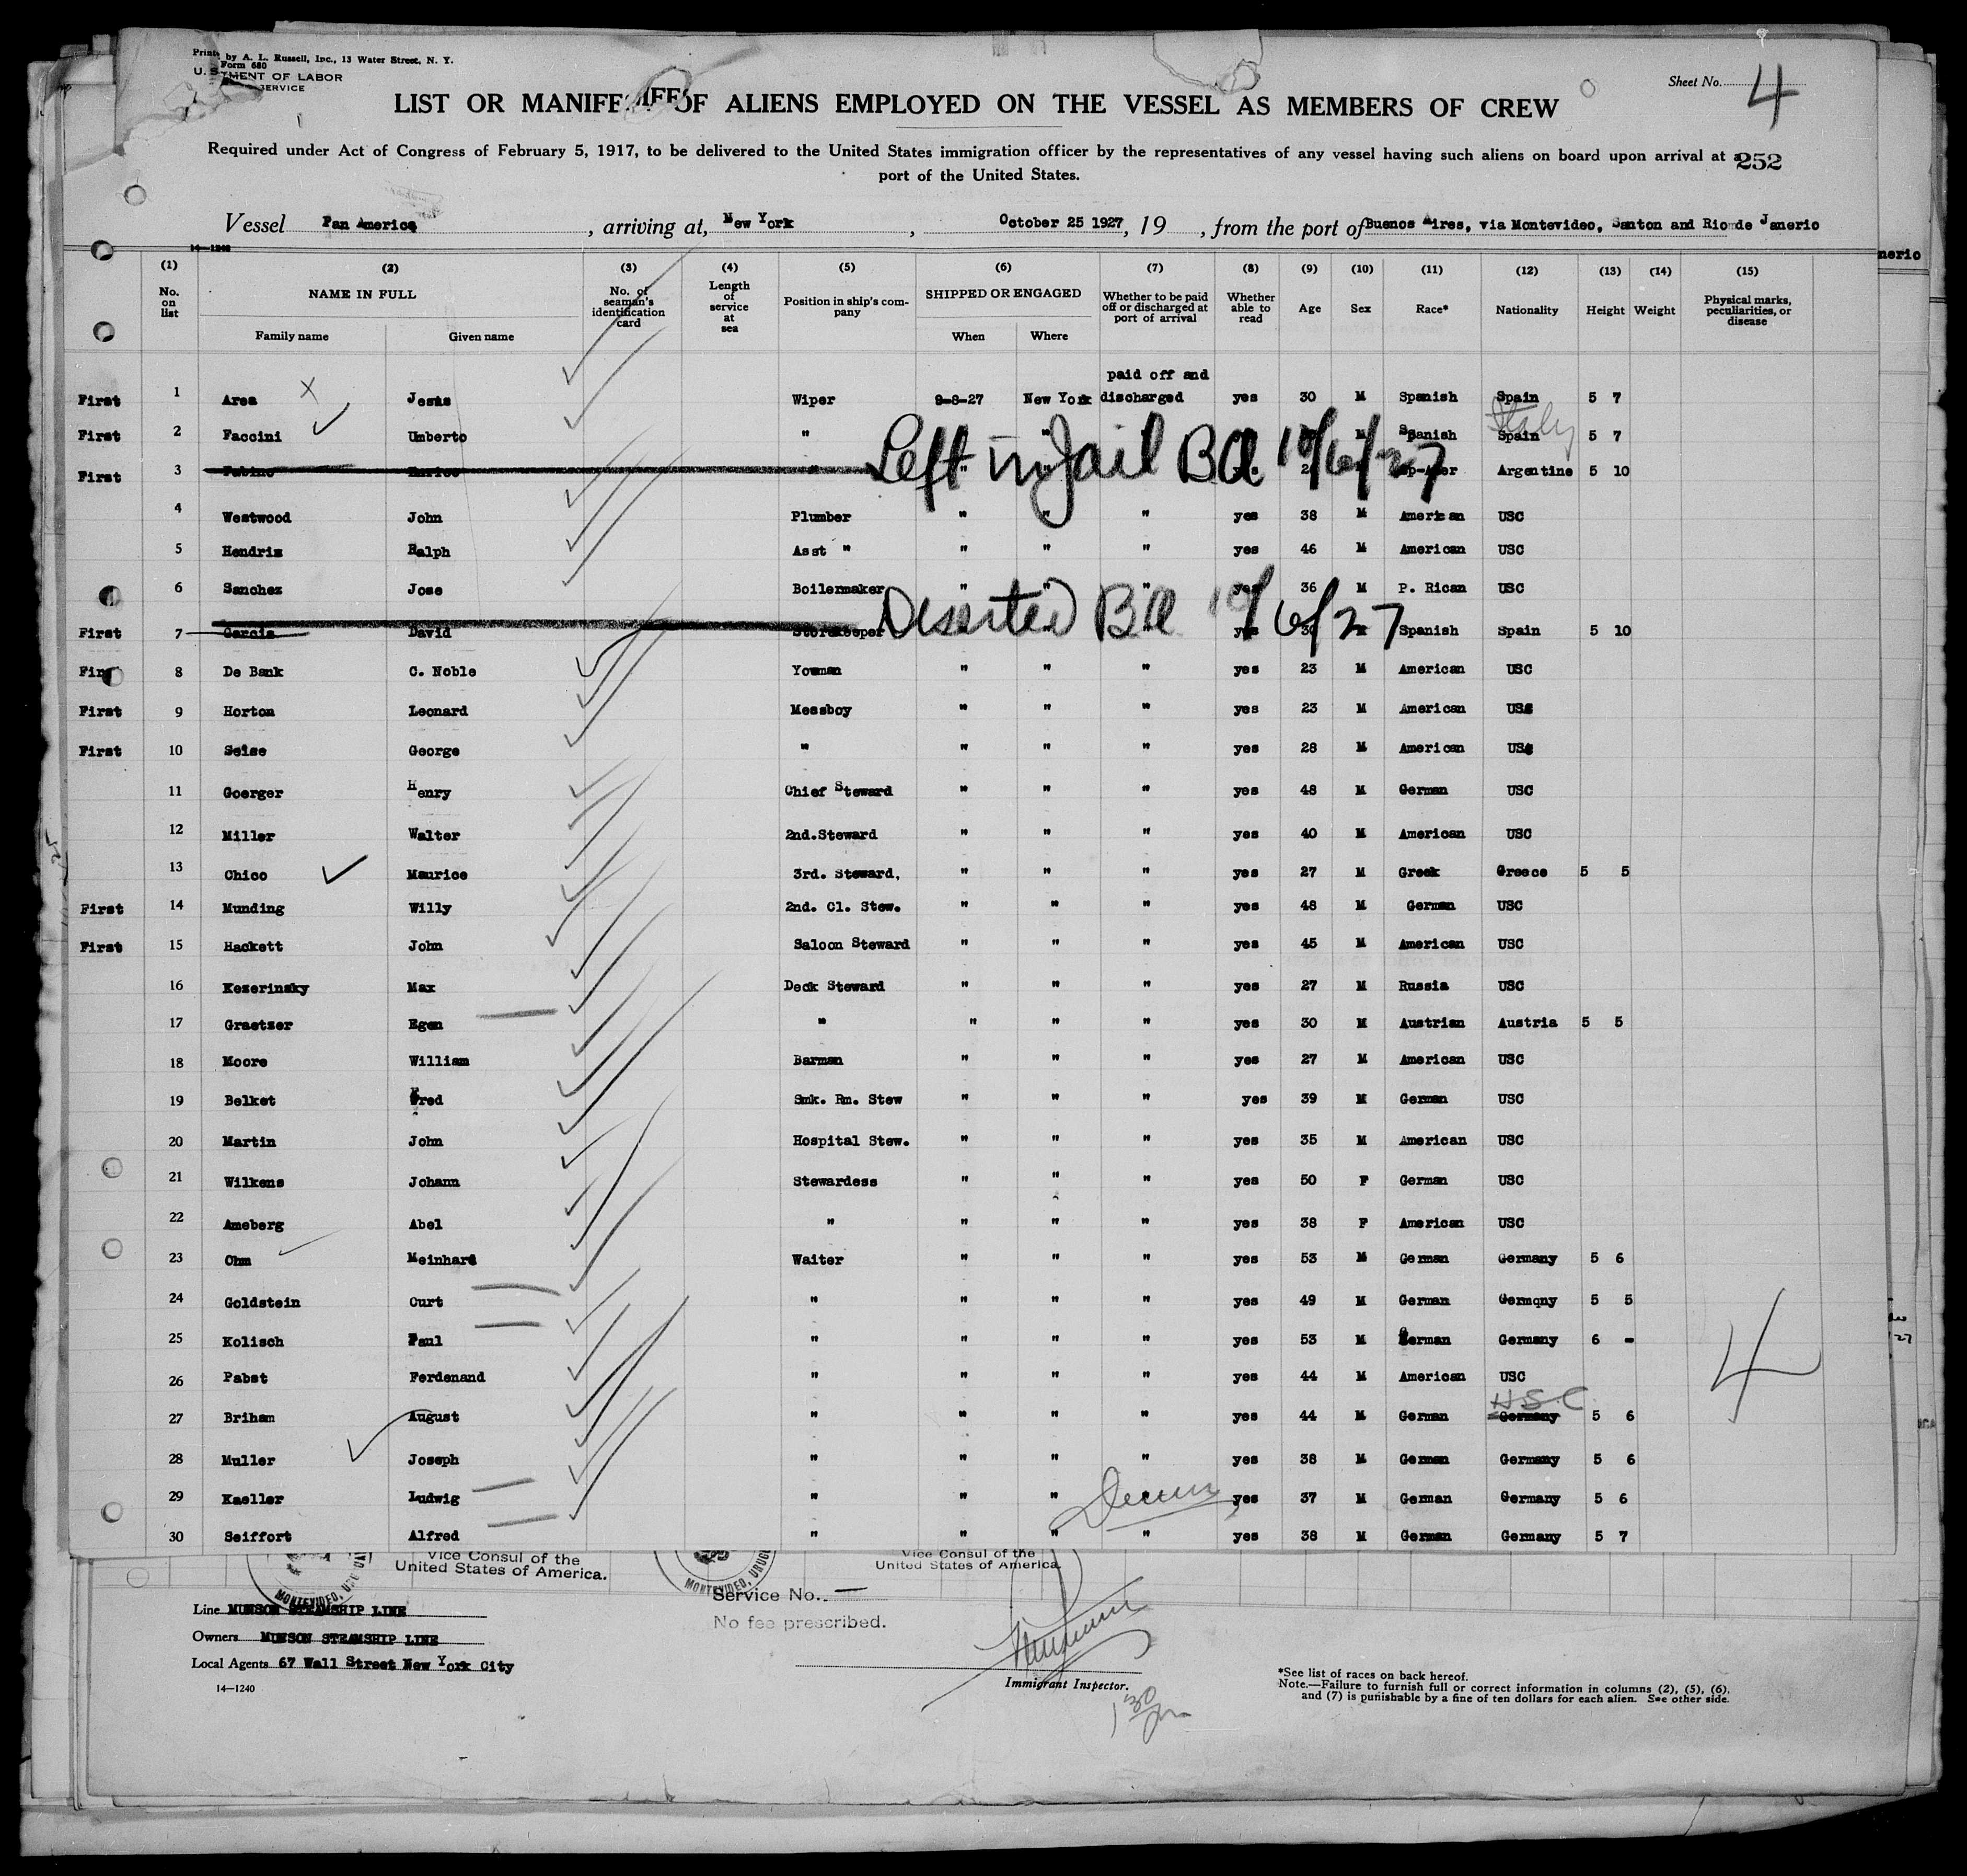 Print by A. L. Russell, Inc., 13 Water Street, N. Y.
Form 680
U. S. TMENT OF LABOR
SERVICE
Sheet No. 4
LIST OR MANIFE OF ALIENS EMPLOYED ON THE VESSEL AS MEMBERS OF CREW
Required under Act of Congress of February 5, 1917, to be delivered to the United States immigration officer by the representatives of any vessel having such aliens on board upon arrival at a
port of the United States.
252
Vessel Pan America, arriving at, New York, October 25 1927, 19 , from the port of Buenos Aires, via Montevideo, Santon and Rio de Janerio
14-1240
nerio
(1) (2) (3) (4) (5) (6) (7) (8) (9) (10) (11) (12) (13) (14) (15)
No. on list NAME IN FULL Family name Given name No. of seaman's identification card Length of service at sea Position in ship's company SHIPPED OR ENGAGED When Where Whether to be paid off or discharged at port of arrival Whether able to read Age Sex Race* Nationality Height Weight Physical marks, peculiarities, or disease
First 1 Area Jesus Wiper 9-8-27 New York paid off and discharged yes 30 M Spanish Spain 5 7
First 2 Faccini Umberto " " M Spanish Spain Italy 5 7
First 3 " Left in Jail BA 10/6/27 Argentine 5 10
4 Westwood John Plumber " " " yes 38 M American USC
5 Hendrix Ralph Asst " " " " yes 46 M American USC
6 Sanchez Jose Boilermaker " " " yes 36 M P. Rican USC
First 7 Garcia David Storekeeper Deserted BA 10/6/27 yes Spanish Spain 5 10
First 8 De Bank C. Noble Yowman " " " yes 23 M American USC
First 9 Horton Leonard Messboy " " " yes 23 M American USC
First 10 Seise George " " " " yes 28 M American USC
11 Goerger Henry Chief Steward " " " yes 48 M German USC
12 Miller Walter 2nd.Steward " " " yes 40 M American USC
13 Chico Maurice 3rd. Steward, " " " yes 27 M Greek Greece 5 5
First 14 Munding Willy 2nd. Cl. Stew. " " " yes 48 M German USC
First 15 Hackett John Saloon Steward " " " yes 45 M American USC
16 Kezerinsky Max Deck Steward " " " yes 27 M Russia USC
17 Graetzer Egen " " " " yes 30 M Austrian Austria 5 5
18 Moore William Barman " " " yes 27 M American USC
19 Belket Fred Smk. Rm. Stew " " " yes 39 M German USC
20 Martin John Hospital Stew. " " " yes 35 M American USC
21 Wilkens Johann Stewardess " " " yes 50 F German USC
22 Ameberg Abel " " " " yes 38 F American USC
23 Ohm Meinhard Waiter " " " yes 53 M German Germany 5 6
24 Goldstein Curt " " " " yes 49 M German Germqny 5 5
25 Kolisch Paul " " " " yes 53 M German Germany 6 -
26 Pabst Ferdenand " " " " yes 44 M American USC
27 Briham August " " " " yes 44 M German Germany U.S.C. 5 6
28 Muller Joseph " " " " yes 38 M German Germany 5 6
29 Kaeller Ludwig " " " yes 37 M German Germany 5 6
30 Seiffort Alfred " " " " yes 38 M German Germany 5 7
4
Vice Consul of the
United States of America.
MONTEVIDEO, URUGUAY
Vice Consul of the
United States of America.
MONTEVIDEO, URUGU
Service No. —
No fee prescribed.
Line MUNSON STEAMSHIP LINE
Owners MUNSON STEAMSHIP LINE
Local Agents 67 Wall Street New York City
14—1240
Immigrant Inspector.
1 30
*See list of races on back hereof.
Note.—Failure to furnish full or correct information in columns (2), (5), (6),
and (7) is punishable by a fine of ten dollars for each alien. See other side.